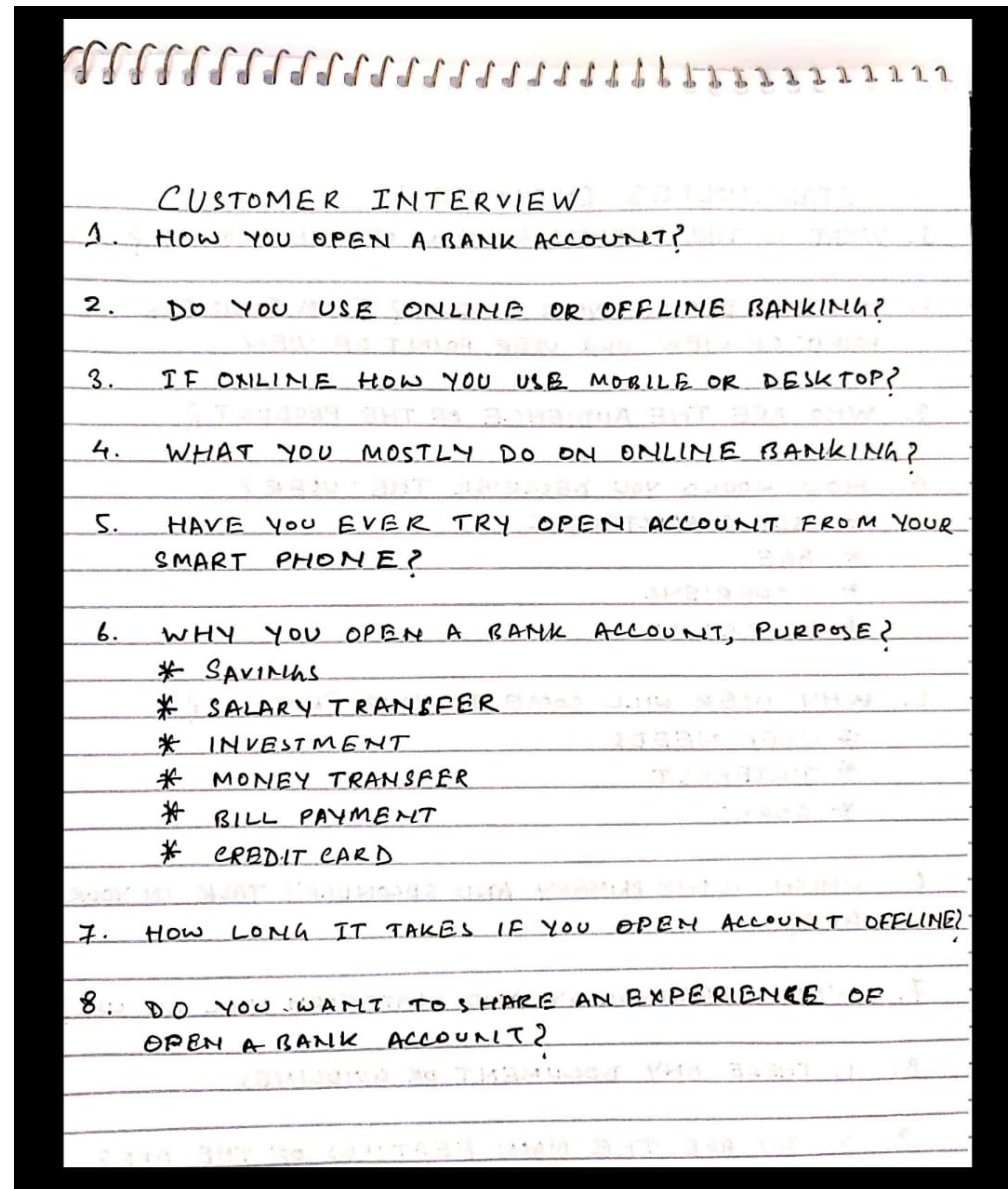 CUSTOMER INTERVIEW
1. HOW YOU OPEN A BANK ACCOUNT?
2. DO YOU USE ONLINE OR OFFLINE BANKING?
3. IF ONLINE HOW YOU USE MOBILE OR DESKTOP?
4. WHAT YOU MOSTLY DO ON ONLINE BANKING?
5. HAVE YOU EVER TRY OPEN ACCOUNT FROM YOUR
SMART PHONE?
6. WHY YOU OPEN A BANK ACCOUNT, PURPOSE?
* SAVINGS
* SALARY TRANSFER
* INVESTMENT
* MONEY TRANSFER
* BILL PAYMENT
* CREDIT CARD
7. HOW LONG IT TAKES IF YOU OPEN ACCOUNT OFFLINE?
8. DO YOU WANT TO SHARE AN EXPERIENCE OF
OPEN A BANK ACCOUNT?